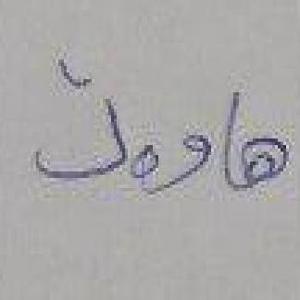 هاوەڵ